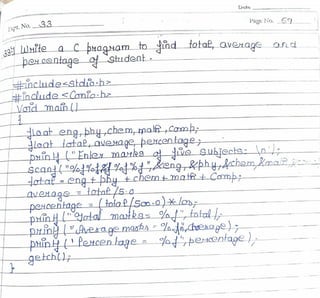 Date
Expt. No. 33
Page No. 57
33.) Write a C program to find total, average and
percentage of student.
#include<stdio.h>
#include<Conio.h>
Void main()
{
float eng,phy,chem,math,Comp;
float total,average,percentage;
printf("Enter marks of five subjects: \n");
scanf("%f%f%f%f%f",&eng,&phy,&chem,&math,
total = eng + phy + chem + math + Comp;
average = total/5.0
percentage = (total/500.0)*100;
printf("Total marks= %.f",total);
printf("Average marks= %.f",average);
printf("Percentage = %.f",percentage);
getch();
}